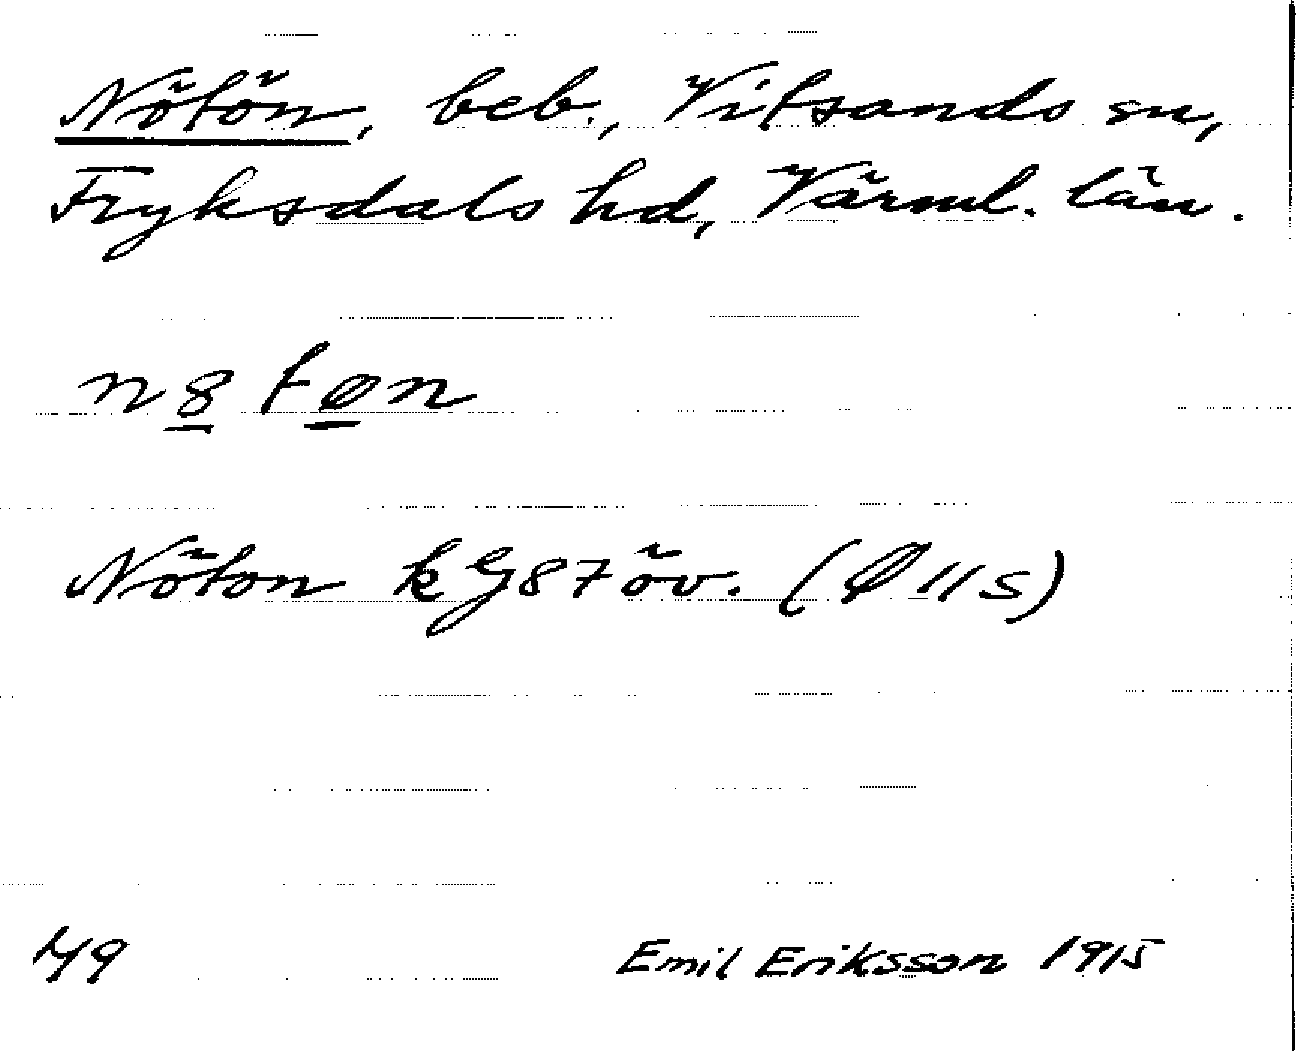 Nötön, beb., Vitsands sn,
Fryksdals hd, Värml. län.
n8tøn
Nöton kG87öv. (Ø11s)
49
Emil Eriksson 1915